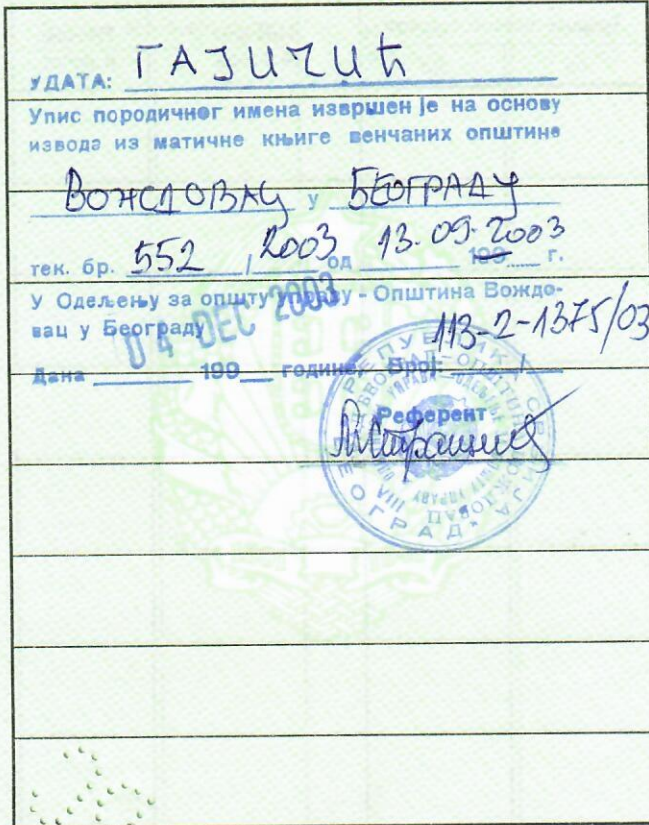 УДАТА: ГАЈИЧИЋ
Упис породичног имена извршен је на основу
извода из матичне књиге венчаних општине
ВОЖДОВАЦ у БЕОГРАДУ
тек. бр. 552 / 2003 од 13.09.2003 199 г.
У Одељењу за општу управу - Општина Вождо-
вац у Београду
04 DEC 2003
113-2-1375/03
Дана 199 године, Број:
Референт
РЕПУБЛИКА СРБИЈА
БЕОГРАД